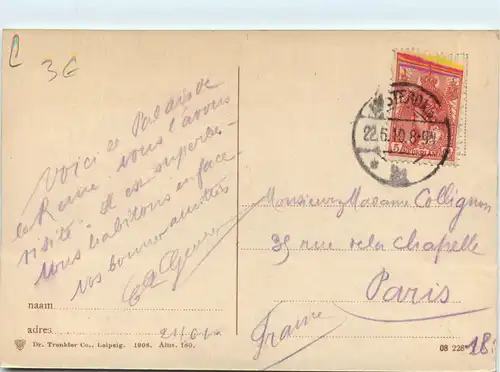 3€
Voici le Palais de
la Reine nous l'avons
visité. Il est superbe
nous habitons en face
vos bonnes amitiés
naam
adres
Dr. Trenkler Co., Leipzig. 1908. Ams. 160.
22.6.10.8-9N
5
Monsieur Madame Collignon
35 rue de la Chapelle
Paris
18
France
08 228